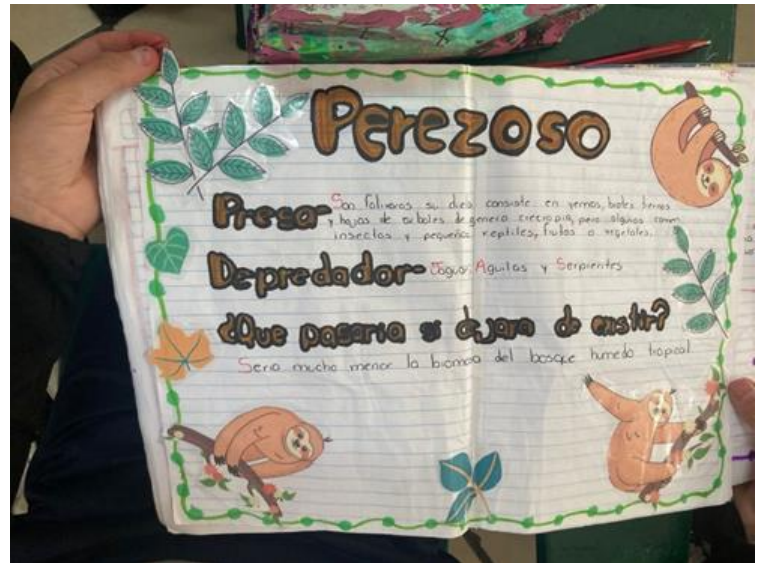 Perezoso
Presa- Son folívoros su dieta consiste en yemas, brotes tiernos
y hojas de arboles de genero crecropia, pero algunos comen
insectos y pequeños reptiles, frutas o vegetales.
Depredador- Jaguar Aguilas y Serpientes
¿Que pasaria si dejara de existir?
Seria mucho menor la biomasa del bosque humedo tropical